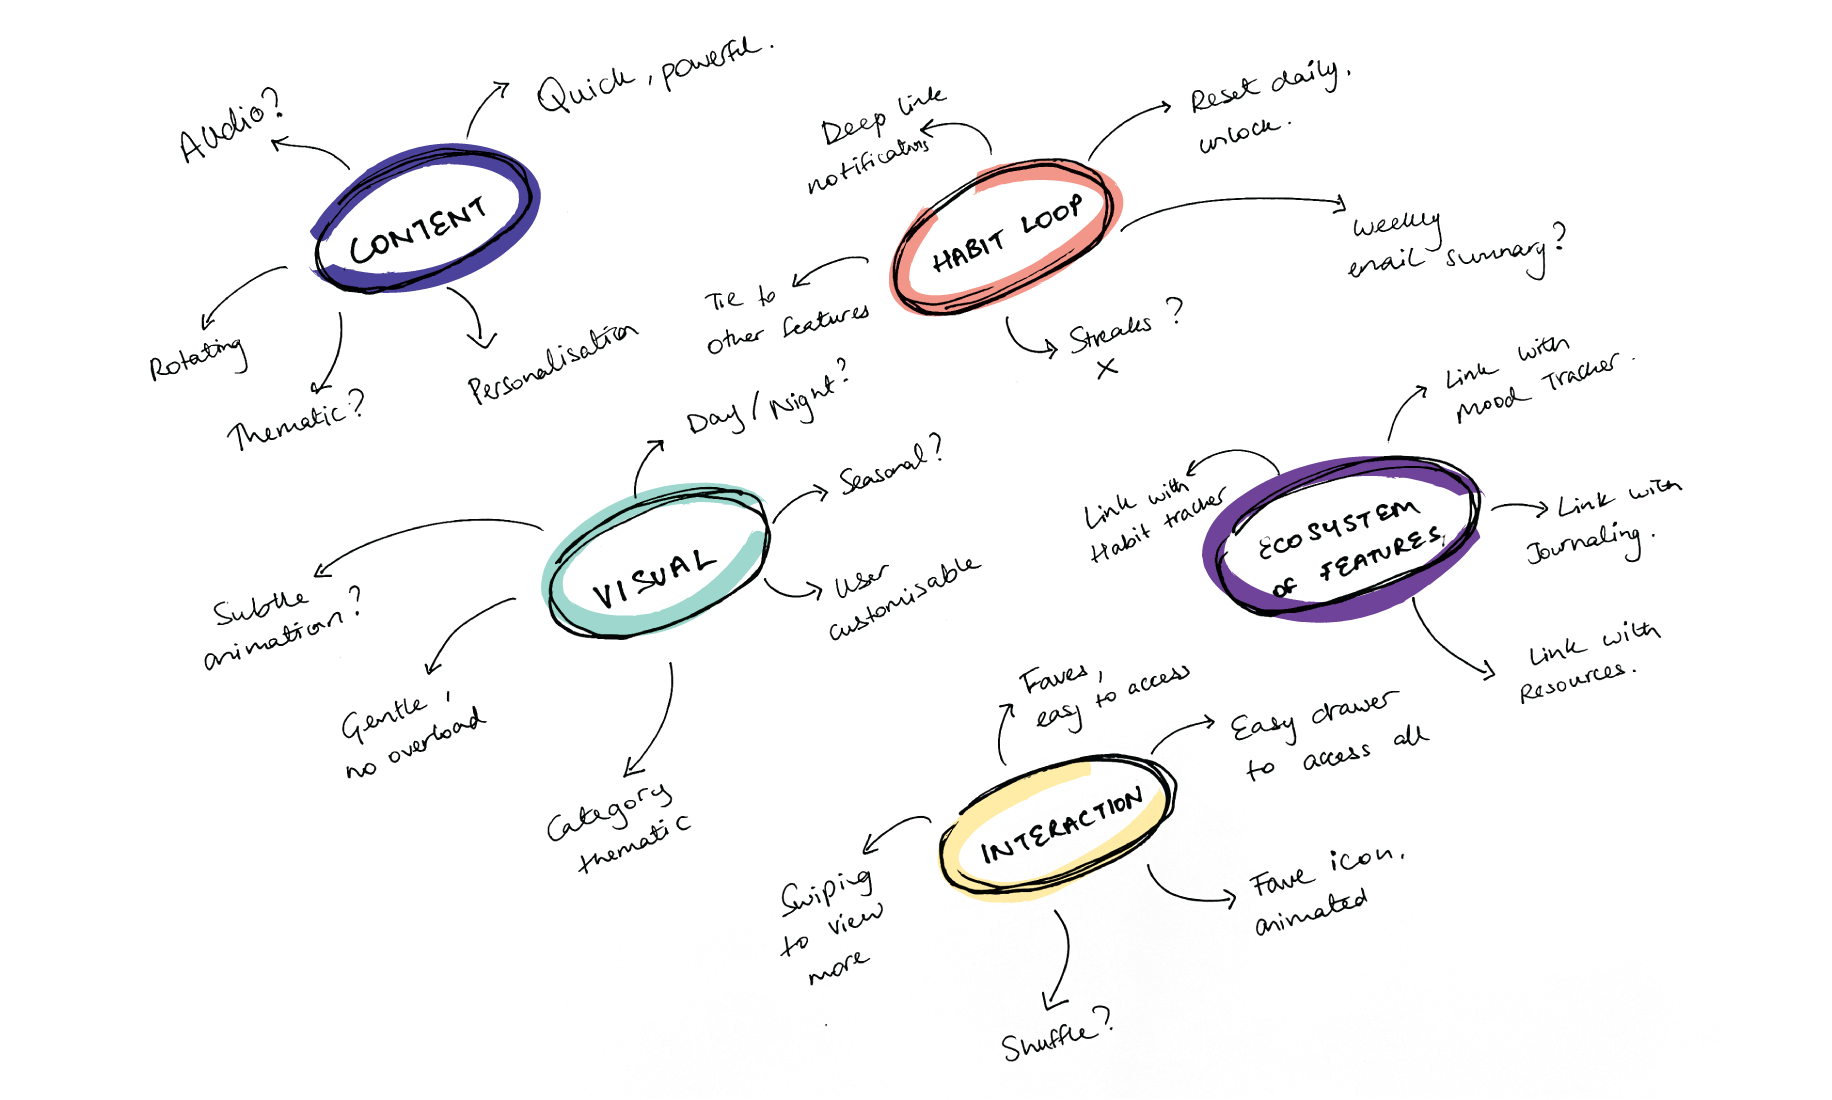 Audio?
Quick, powerful.
CONTENT
Rotating
Thematic?
Personalisation
Deep link
notifications
Reset daily,
unlock.
HABIT LOOP
Weekly
email summary?
Tie to
other features
Streaks?
X
Day/Night?
Seasonal?
VISUAL
User
customisable
Subtle
animation?
Gentle,
no overload
Category
thematic
Link with
Mood Tracker.
Link with
Habit tracker
ECOSYSTEM
OF FEATURES,
Link with
Journaling.
Link with
Resources.
Faves,
easy to access
Easy drawer
to access all
INTERACTION
Swiping
to view
more
Fave icon,
animated
Shuffle?